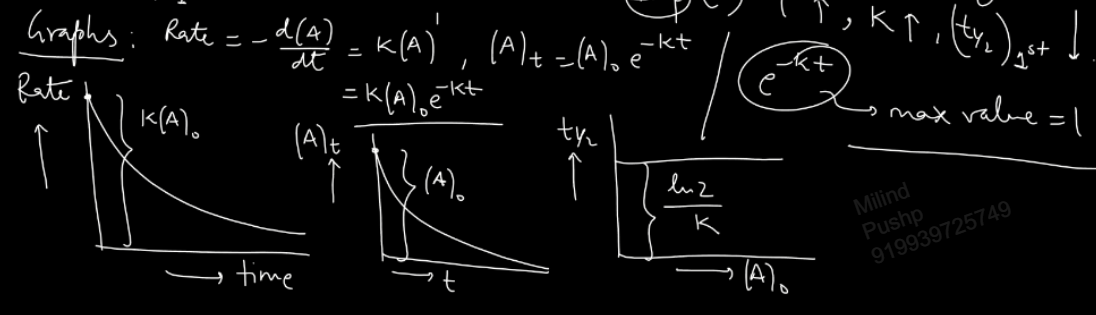 Graphs: Rate = -d(A)/dt = K(A)¹, (A)t = (A)₀ e^-Kt
= K(A)₀e^-Kt
K↑, (t½)1st ↓
e^-Kt → max value = 1
Rate ↑
K(A)₀
→ time
(A)t ↑
(A)₀
→ t
t½ ↑
ln2/K
→ (A)₀
Milind
Pushp
919939725749